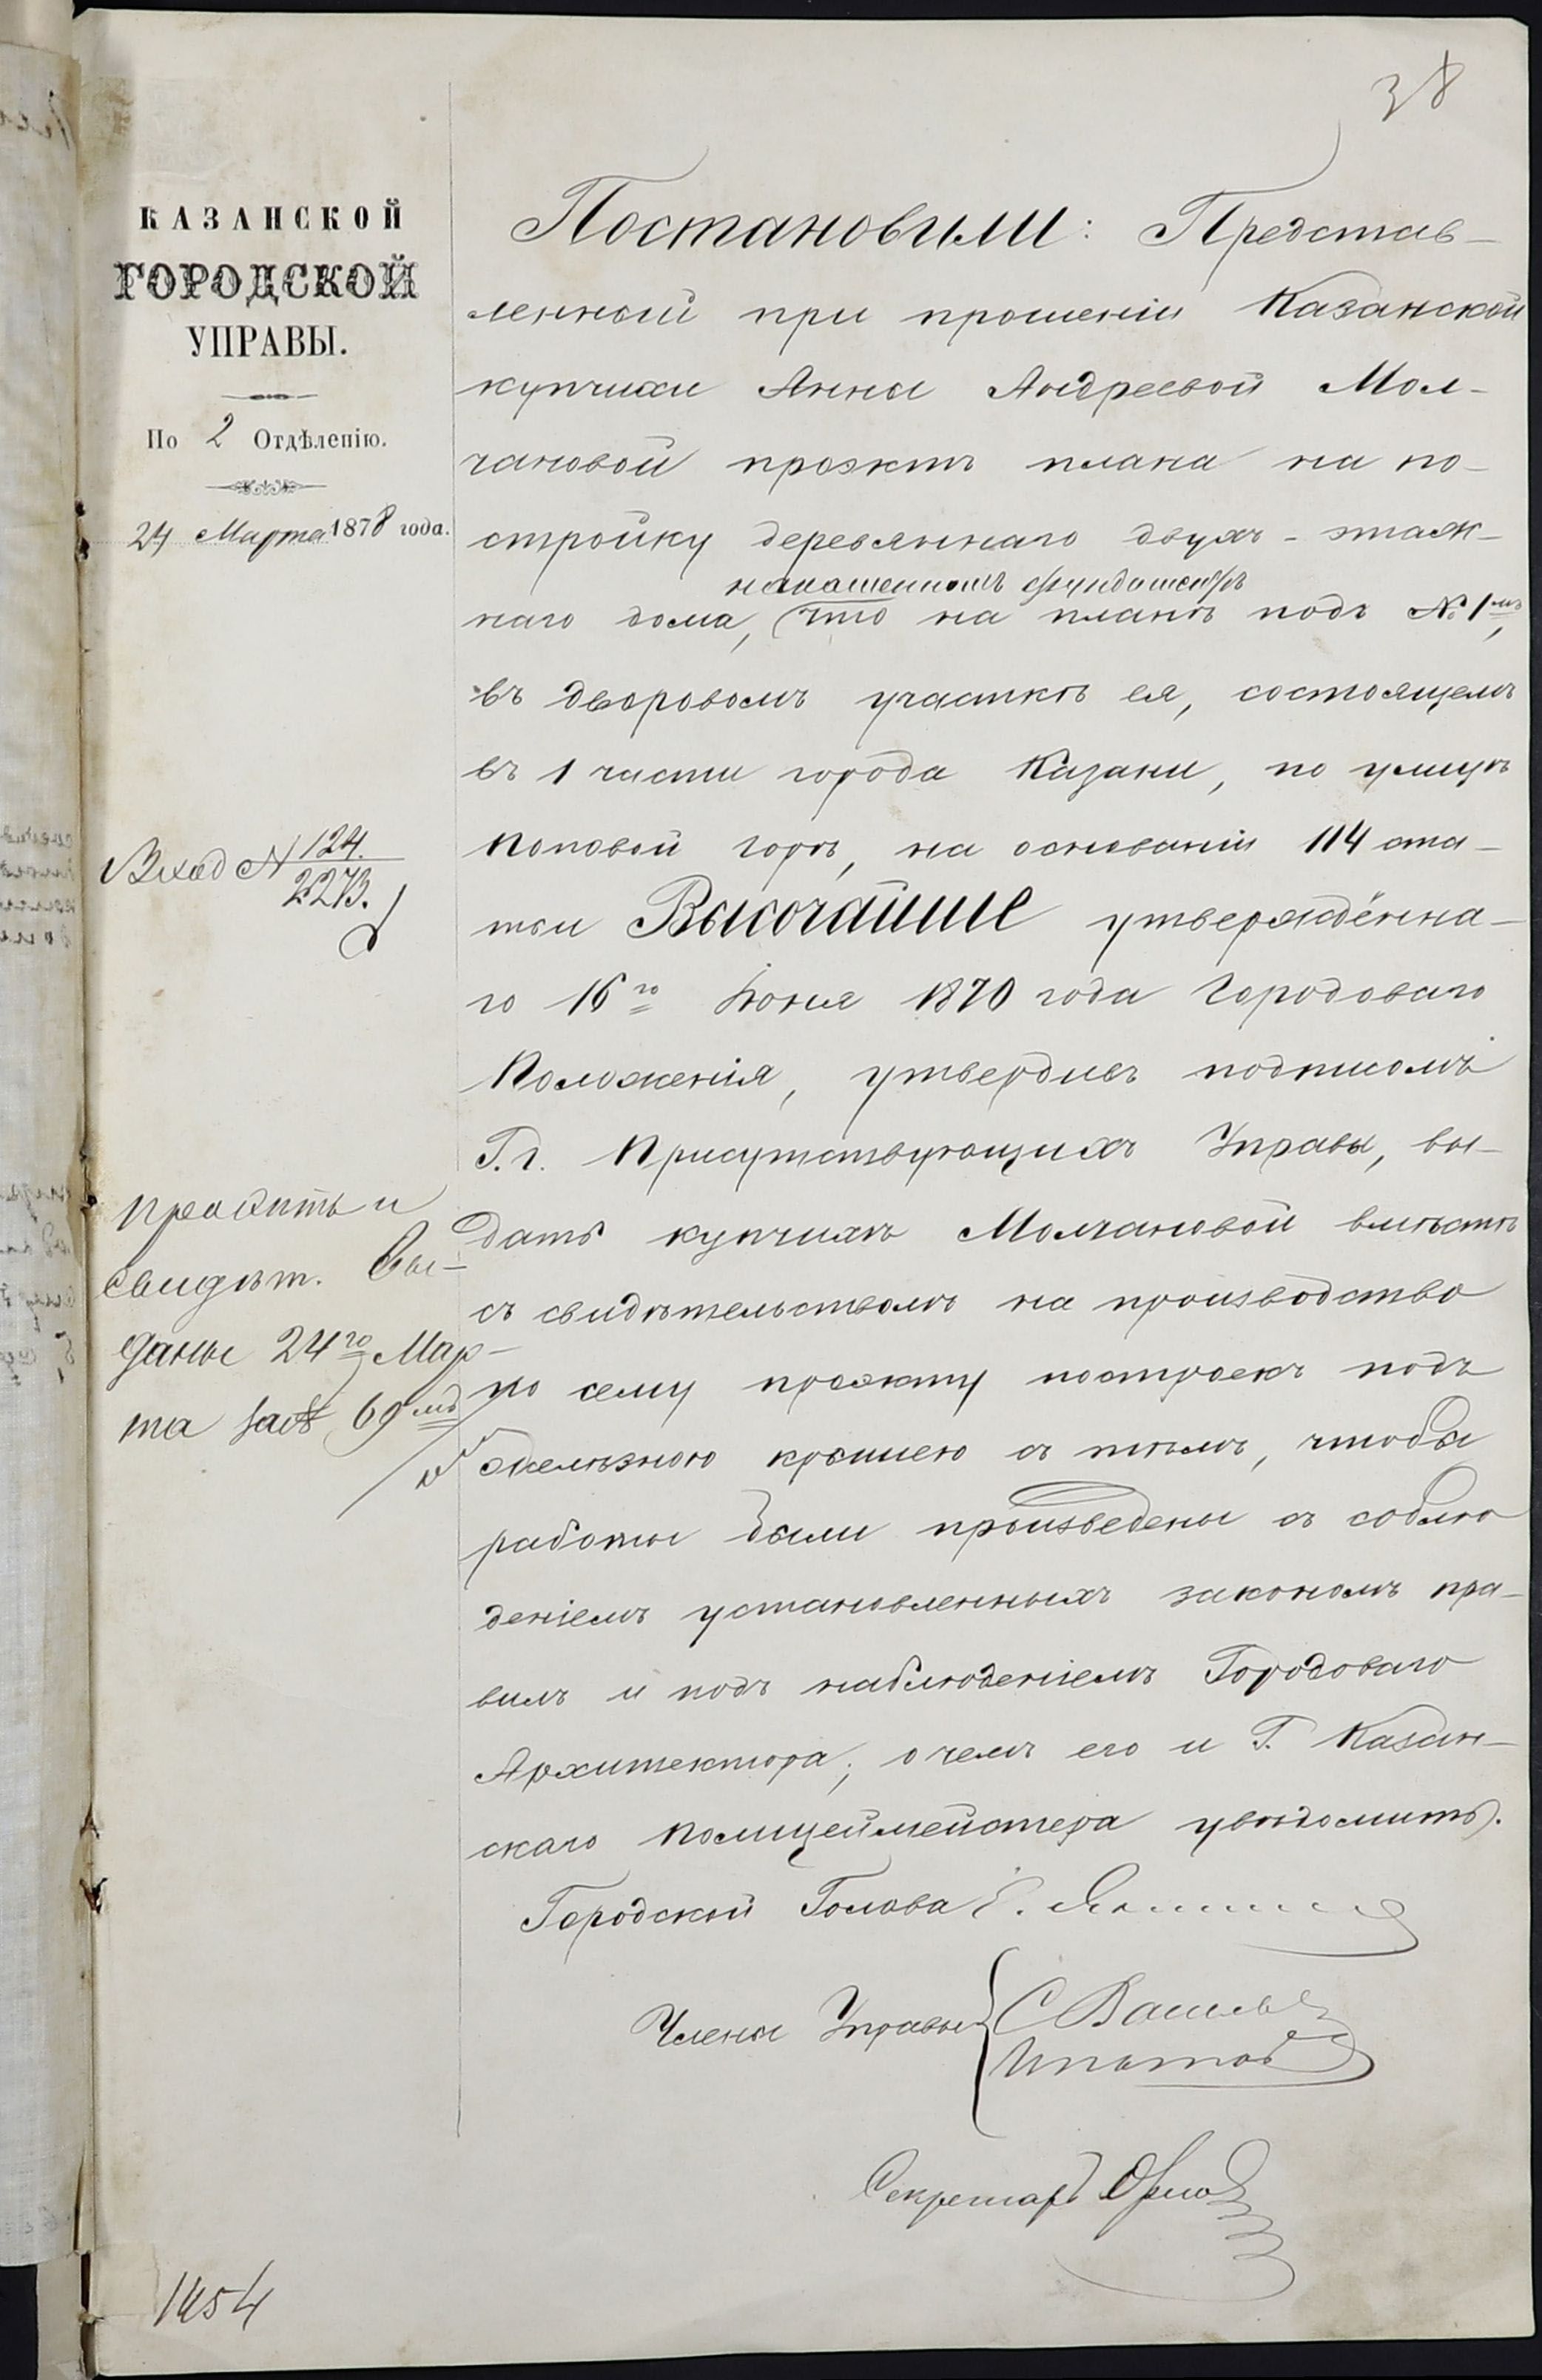 38
КАЗАНСКОЙ
ГОРОДСКОЙ
УПРАВЫ.
По 2 Отдѣленію.
24 Марта 1878 года.
Вход № 124.
2273.
Проэктъ и
свидѣт. вы-
даны 24го Мар-
та за № 69мъ
1454
Постановили: Представ-
ленный при прошеніи Казанской
купчихи Анны Андреевой Мол-
чановой проэктъ плана на по-
стройку деревяннаго двухъ-этаж-
на каменномъ фундаментѣ
наго дома, что на планѣ подъ № 1мъ,
въ дворовомъ участкѣ ея, состоящемъ
въ 1 части города Казани, по улицѣ
Поповой горѣ, на основаніи 114 ста-
тьи Высочайше утверждённа-
го 16го Іюня 1870 года Городоваго
Положенія, утвердивъ подписомъ
Г.г. Присутствующихъ Управы, вы-
дать купчихѣ Молчановой вмѣстѣ
съ свидѣтельствомъ на производство
по сему проэкту построекъ подъ
желѣзною крышею съ тѣмъ, чтобы
работы были произведены съ соблю
деніемъ установленныхъ закономъ пра-
вилъ и подъ наблюденіемъ Городоваго
Архитектора; о чемъ его и Г. Казан-
скаго Полицеймейстера увѣдомить.
Городской Голова
Члены Управы
Ипатов
Секретарь Орлов